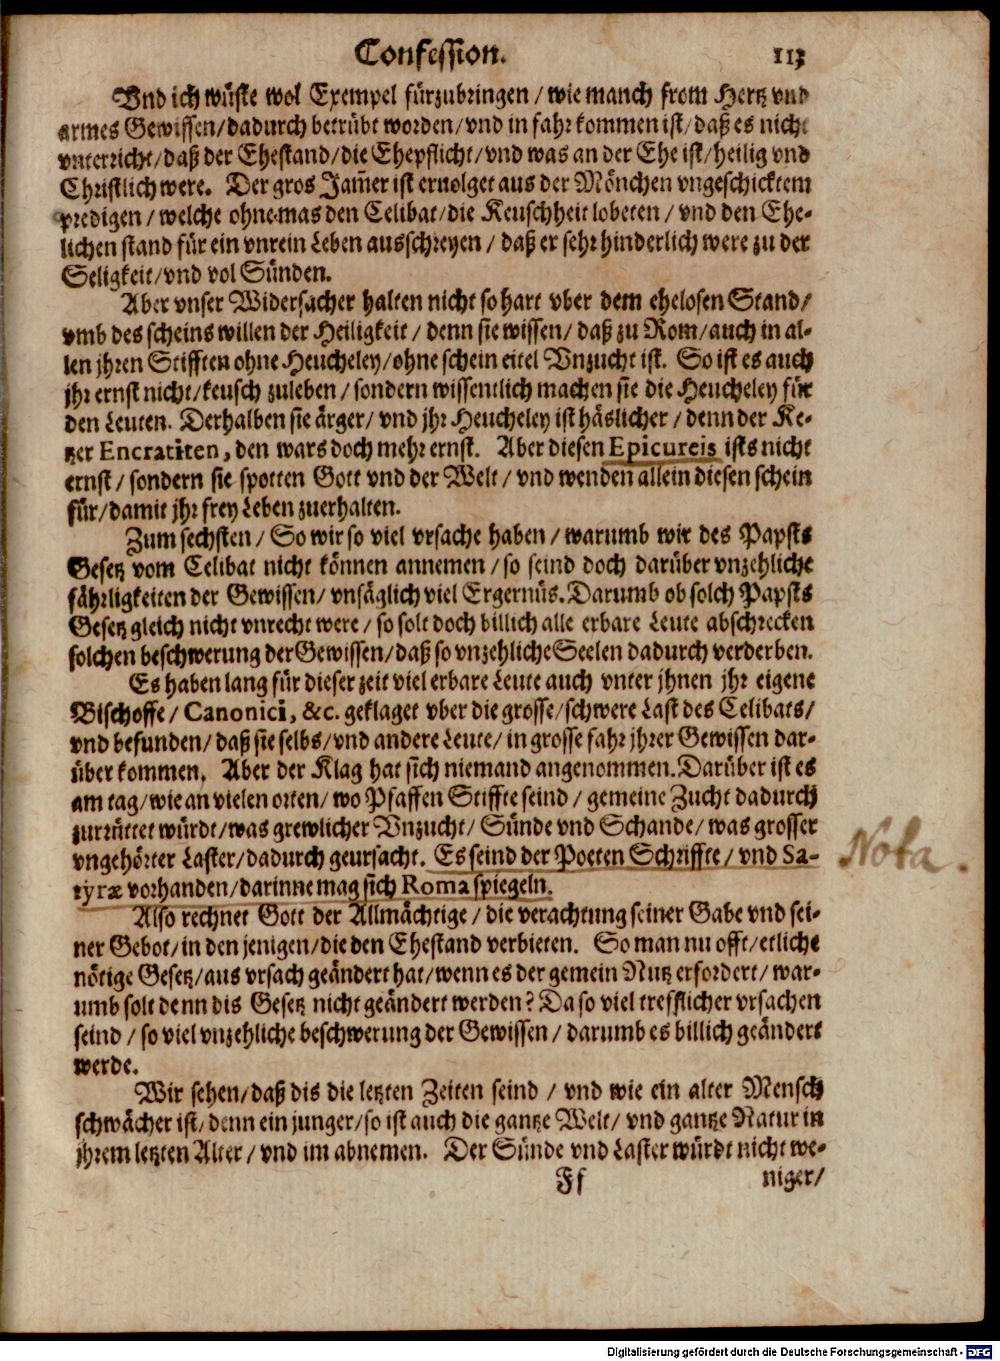 Confession. 113
Vnd ich wüste wol Exempel fürzubringen / wie manch from Hertz vnd
armes Gewissen / dadurch betrübt worden / vnd in fahr kommen ist / daß es nicht
vnterricht / daß der Ehestand / die Ehepflicht / vnd was an der Ehe ist / heilig vnd
Christlich were. Der gros Jam̃er ist eruolget aus der Mönchen vngeschicktem
predigen / welche ohne mas den Celibat / die Keuschheit lobeten / vnd den Ehe-
lichen stand für ein vnrein Leben ausschreyen / daß er sehr hinderlich were zu der
Seligkeit / vnd vol Sünden.
Aber vnser Widersacher halten nicht so hart vber dem ehelosen Stand /
vmb des scheins willen der Heiligkeit / denn sie wissen / daß zu Rom / auch in al-
len jhren Stifften ohne Heucheley / ohne schein eitel Vnzucht ist. So ist es auch
jhr ernst nicht / keusch zuleben / sondern wissentlich machen sie die Heucheley für
den Leuten. Derhalben sie ärger / vnd jhr Heucheley ist häslicher / denn der Ke-
tzer Encratiten, den wars doch mehr ernst. Aber diesen Epicureis ists nicht
ernst / sondern sie spotten Gott vnd der Welt / vnd wenden allein diesen schein
für / damit jhr frey Leben zuerhalten.
Zum sechsten / So wir so viel vrsache haben / warumb wir des Papsts
Gesetz vom Celibat nicht können annemen / so seind doch darüber vnzehliche
fährligkeiten der Gewissen / vnsäglich viel Ergernüs. Darumb ob solch Papsts
Gesetz gleich nicht vnrecht were / so solt doch billich alle erbare Leute abschrecken
solchen beschwerung der Gewissen / daß so vnzehliche Seelen dadurch verderben.
Es haben lang für dieser zeit viel erbare Leute auch vnter jhnen jhr eigene
Bischoffe / Canonici, &c. geklaget vber die grosse / schwere Last des Celibats /
vnd befunden / daß sie selbs / vnd andere Leute / in grosse fahr jhrer Gewissen dar-
über kommen. Aber der Klag hat sich niemand angenommen. Darüber ist es
am tag / wie an vielen orten / wo Pfaffen Stiffte seind / gemeine Zucht dadurch
zurrüttet würdt / was grewlicher Vnzucht / Sünde vnd Schande / was grosser
vngehörter Laster / dadurch geursacht. Es seind der Poeten Schriffte / vnd Sa-
tyræ vorhanden / darinne mag sich Roma spiegeln.
Nota.
Also rechnet Gott der Allmächtige / die verachtung seiner Gabe vnd sei-
ner Gebot / in den jenigen / die den Ehestand verbieten. So man nu offt / etliche
nötige Gesetz / aus vrsach geändert hat / wenn es der gemein Nutz erfordert / war-
umb solt denn dis Gesetz nicht geändert werden? Da so viel trefflicher vrsachen
seind / so viel vnzehliche beschwerung der Gewissen / darumb es billich geändert
werde.
Wir sehen / daß dis die letzten Zeiten seind / vnd wie ein alter Mensch
schwächer ist / denn ein junger / so ist auch die gantze Welt / vnd gantze Natur in
jhrem letzten Alter / vnd im abnemen. Der Sünde vnd Laster würdt nicht we-
Ff niger /
Digitalisierung gefördert durch die Deutsche Forschungsgemeinschaft - DFG